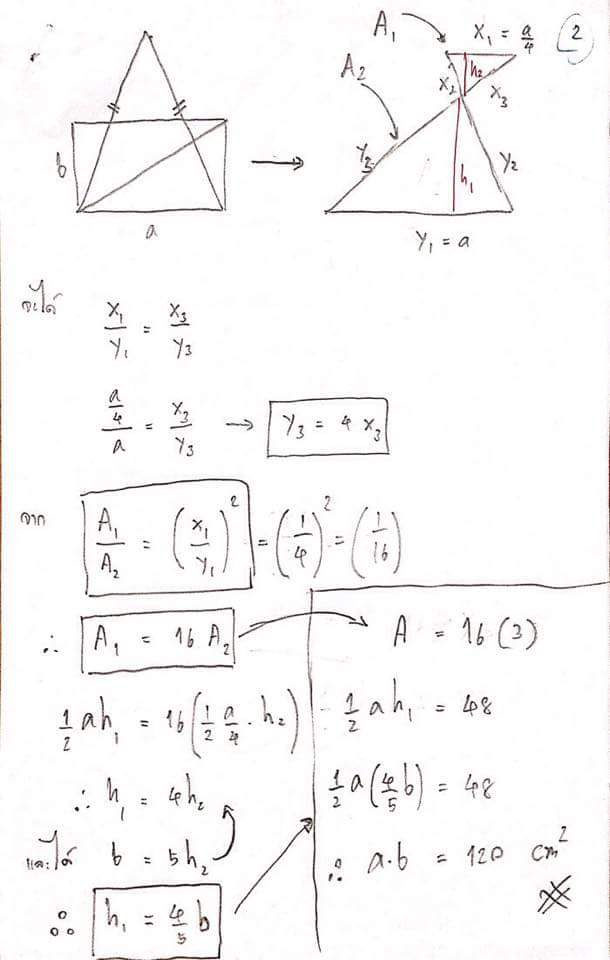 2
A₁
X₁ = a/4
A₂
h₂
X₂
X₃
b
Y₃
h₁
Y₂
a
Y₁ = a
จะได้
X₁/Y₁ = X₃/Y₃
(a/4)/a = X₃/Y₃ → Y₃ = 4 X₃
จาก
A₁/A₂ = (X₁/Y₁)² = (1/4)² = (1/16)
∴ A₁ = 16 A₂
1/2 ah₁ = 16(1/2 a/4 · h₂)
∴ h₁ = 4h₂
และได้ b = 5h₂
∴ h₁ = 4/5 b
A = 16 (3)
1/2 a h₁ = 48
1/2 a(4/5 b) = 48
∴ a·b = 120 cm²